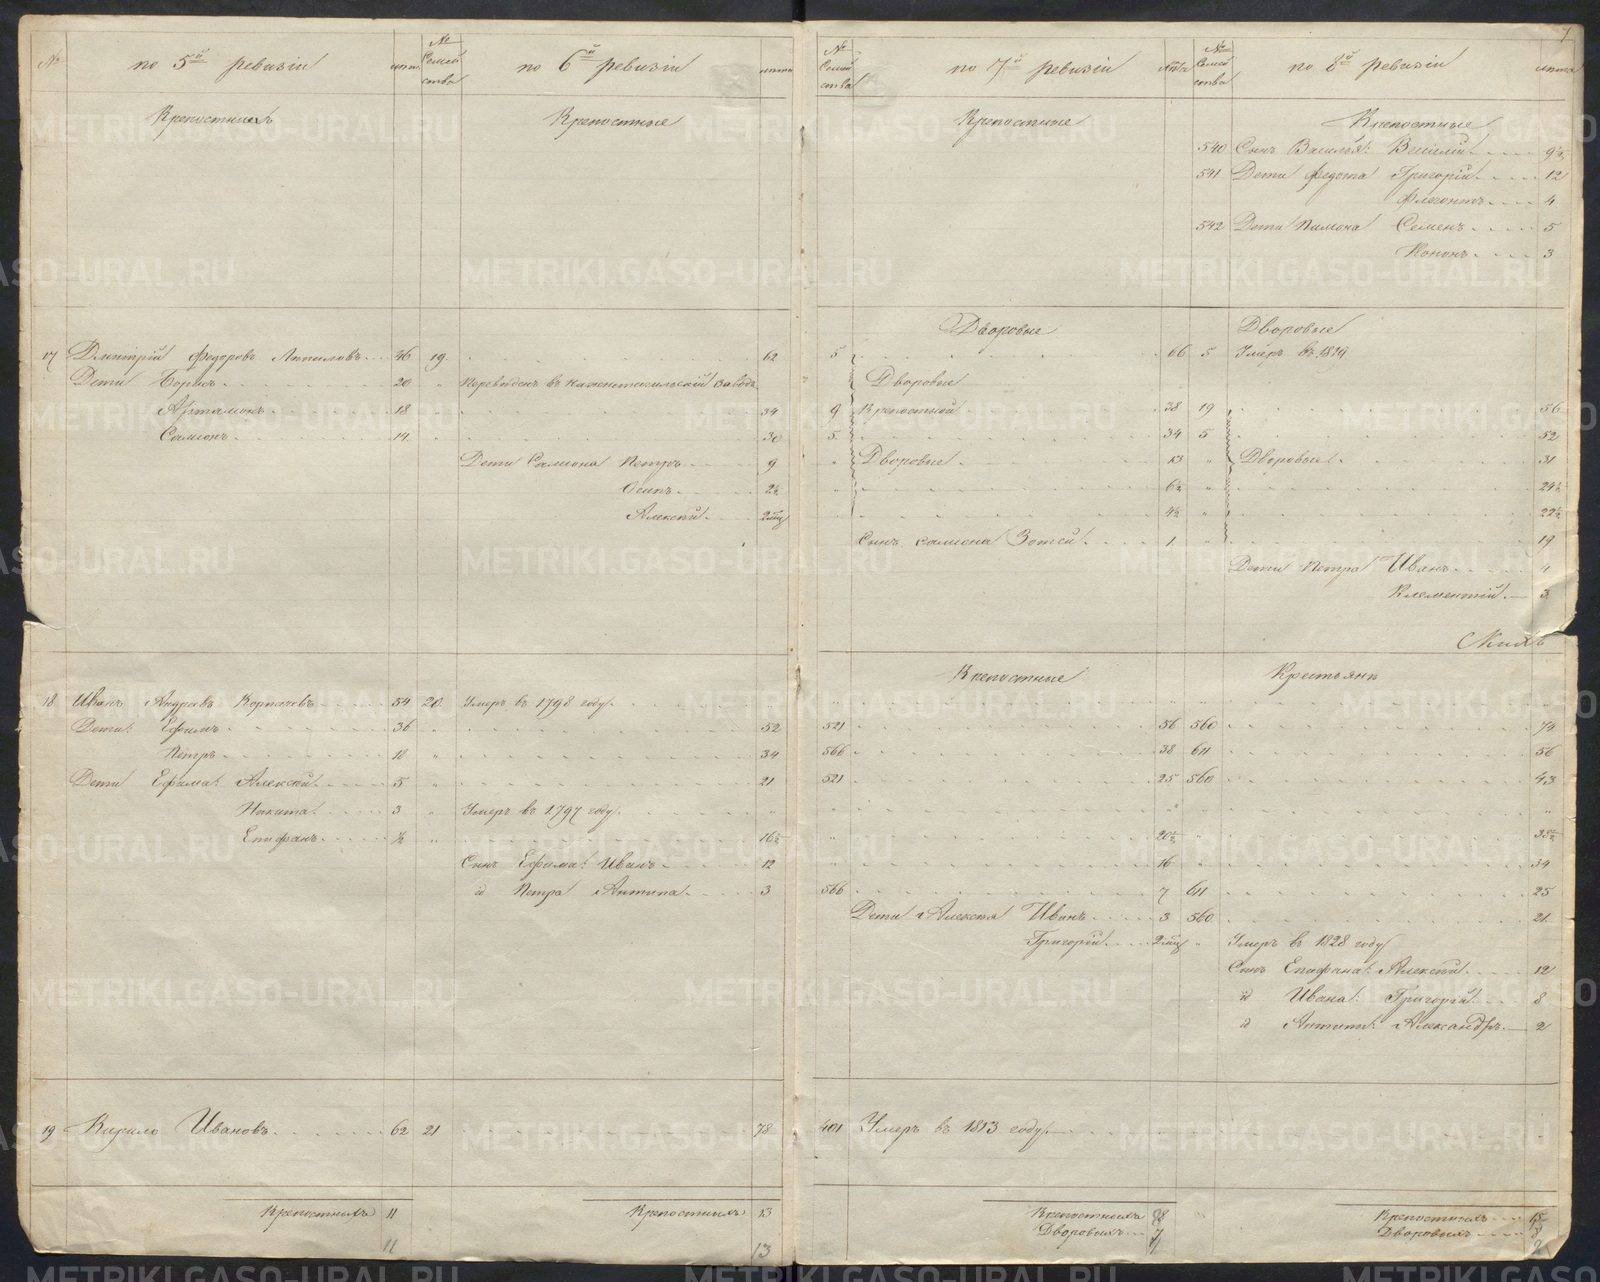 7
№ по 5й ревизіи лѣта № Семейства по 6й ревизіи лѣта
Крепостныхъ Крепостные
17 Дмитрій Федоровъ 46 19 62
Дети Борисъ 20 " Переведенъ въ заводъ
Артамонъ 18 34
Самсонъ 14 30
Дети Самсона Петръ 9
Осипъ 2½
Алексѣй 2 мц
18 Иванъ Андреевъ 54 20 Умеръ въ 1798 году
Дети: Ефимъ 36 " 52
Петръ 18 " 34
Дети Ефима: Алексѣй 5 " 21
Никита 3 " Умеръ въ 1797 году "
Епифанъ ½ " 16½
Сынъ Ефима: Иванъ 12
и Петра Антипа 3
19 Кирило Ивановъ 62 21 78
Крепостныхъ 11 Крепостныхъ 13
11 13
№ Семейства по 7й ревизіи лѣта № Семейства по 8й ревизіи лѣта
Крепостные Крепостные
540 Сынъ Василья: Василій 9½
541 Дети Федота Григорій 12
Флегонтъ 4
542 Дети Памона Семенъ 5
Кононъ 3
Дворовые Дворовые
5 66 5 Умеръ въ 1819
Дворовые
9 Крепостной 38 19 56
5 34 5 52
" Дворовые 13 " Дворовые 31
" 6½ " 24½
" 4½ " 22½
Сынъ Самсона Зотей 1 " 19
Дети Петра Иванъ 4
Клементій 3
Крепостные Крестьянъ
521 56 560 74
566 38 611 56
521 25 560 43
" " " "
" 20½ " 38½
" 16 " 34
566 7 611 25
Дети Алексѣя Иванъ 3 560 21
Григорій 2 мц " Умеръ въ 1828 году
Сынъ Епифана: Алексѣй 12
и Ивана: Григорій 8
и Антипы: Александръ 2
401 Умеръ въ 1813 году
Крепостныхъ Крепостныхъ
Дворовыхъ 7 Дворовыхъ
METRIKI.GASO-URAL.RU